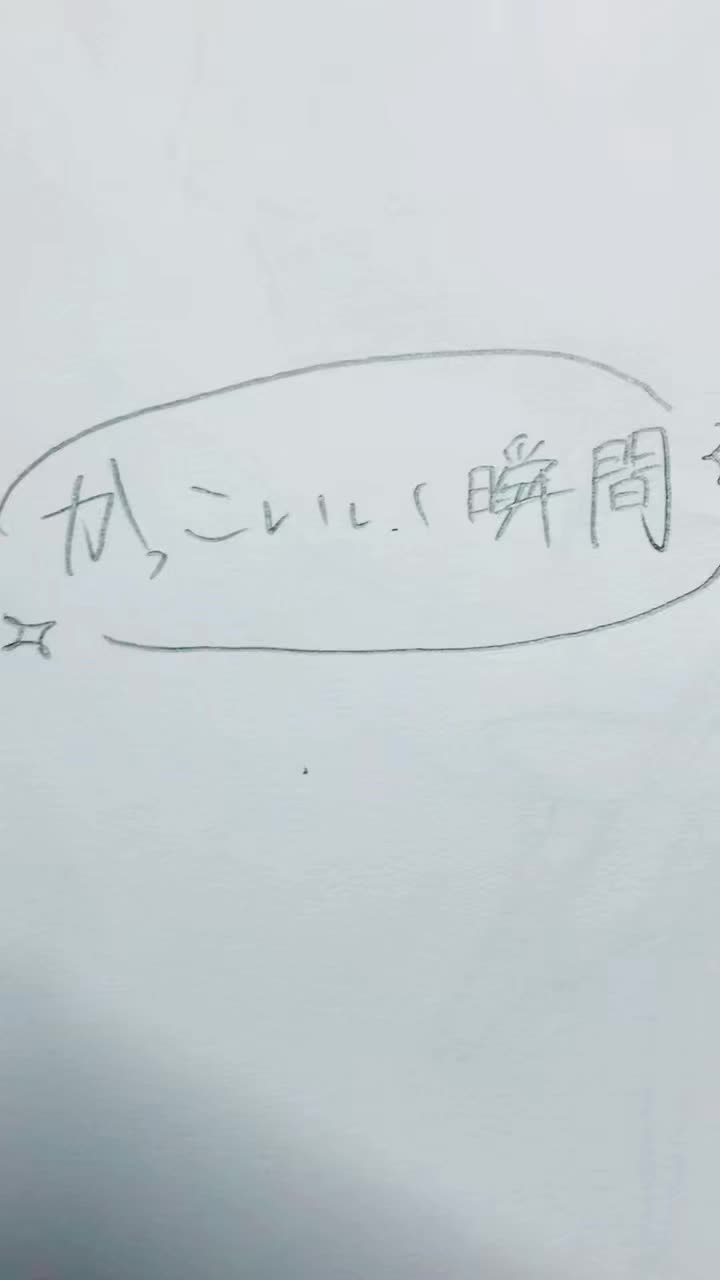 かっこいい瞬間